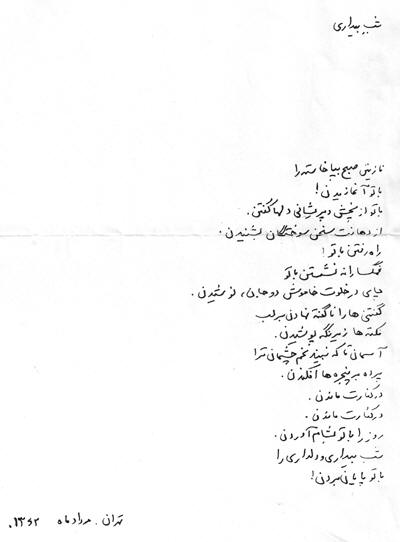 شب بیداری
نازنین صبح بپا خاسته را
با تو آغازیدن!
با تو از رنجش و پریشانی دلها گفتن.
از دهانت سخن سوختگان بشنیدن.
راه رفتن با تو!
غمگسارانه نشستن با تو
چای در خلوت خاموش دو جامی، نوشیدن.
گفتنی ها را ناگفته نهادن بر لب
نکته ها زیر نگه پوشیدن.
آسمانی تا که نبیند نم چشمانی ترا
پرده بر پنجره ها افکندن.
در کنارت ماندن.
در کنارت ماندن.
روز را با تو بشام آوردن.
شب بیداری و دلداری را
با تو پایان بردن!
تهران. مرداد ماه ۱۳۶۲.